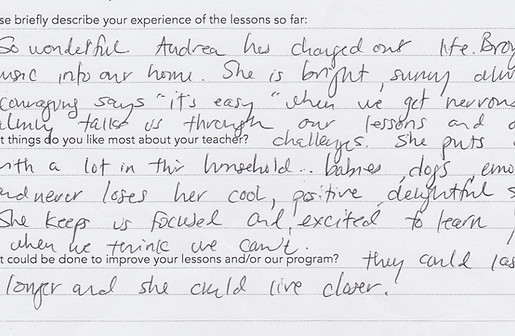 se briefly describe your experience of the lessons so far:
So wonderful. Andrea has changed our life. Bro
music into our home. She is bright, sunny alw
couraging says "it's easy" when we get nervous
almly talks us through our lessons and
t things do you like most about your teacher? challenges. She puts
with a lot in this household.. babies, dogs, emo
and never loses her cool, positive, delightful s
She keeps us focused and excited to learn
when we think we can't.
t could be done to improve your lessons and/or our program? they could las
longer and she could live closer!